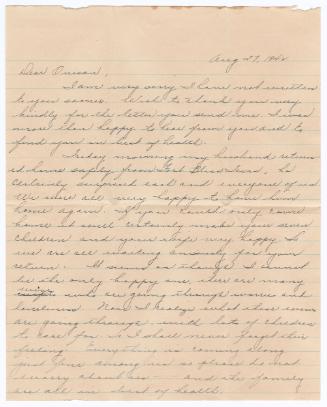 Aug 27, 1942
Dear Onisan,
I am very sorry I have not written
to you sooner. Wish to thank you very
kindly for the letter you send me. I was
more than happy to hear from you and to
find you in best of health.
Friday morning my husband return
ed home safely from Fort Bliss Texas. He
certainly surprised each and everyone of us.
We were all very happy to have him
home again. If you could only come
home it will certainly make your
children and your wife very happy.
we are all waiting anxiously for your
return. It seems as though I cannot
be the only happy one, there are many
wives who are going through worries and
loneliness. Now I realize what these
are going through with lots of children
to care for. So I shall never forget their
feeling. Everything is coming along
just fine among us so please do not
worry about us - and the family
are all in best of health.